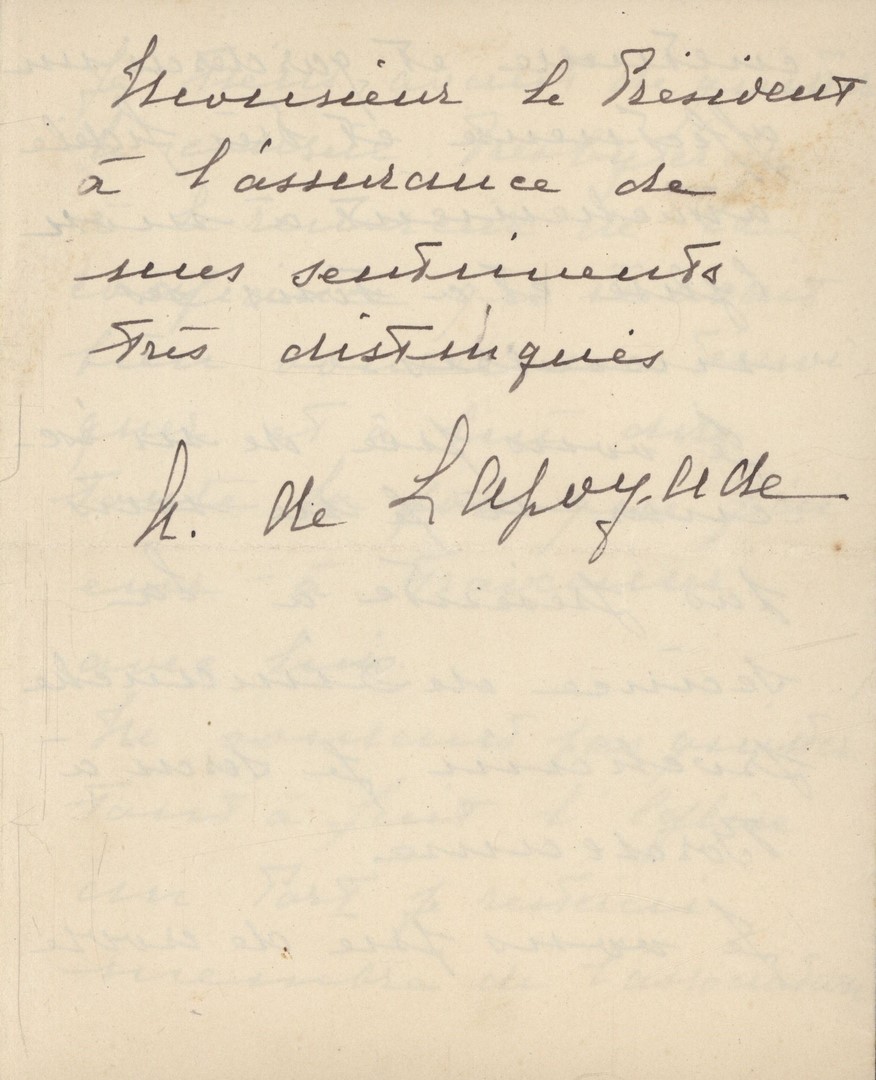 Monsieur le Président
à l'assurance de
mes sentiments
très distingués
h. de Lapoyade